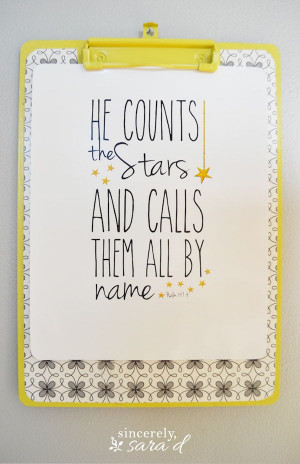 HE COUNTS
the Stars
AND CALLS
THEM ALL BY
name
Psalm 147:4
sincerely,
sara d